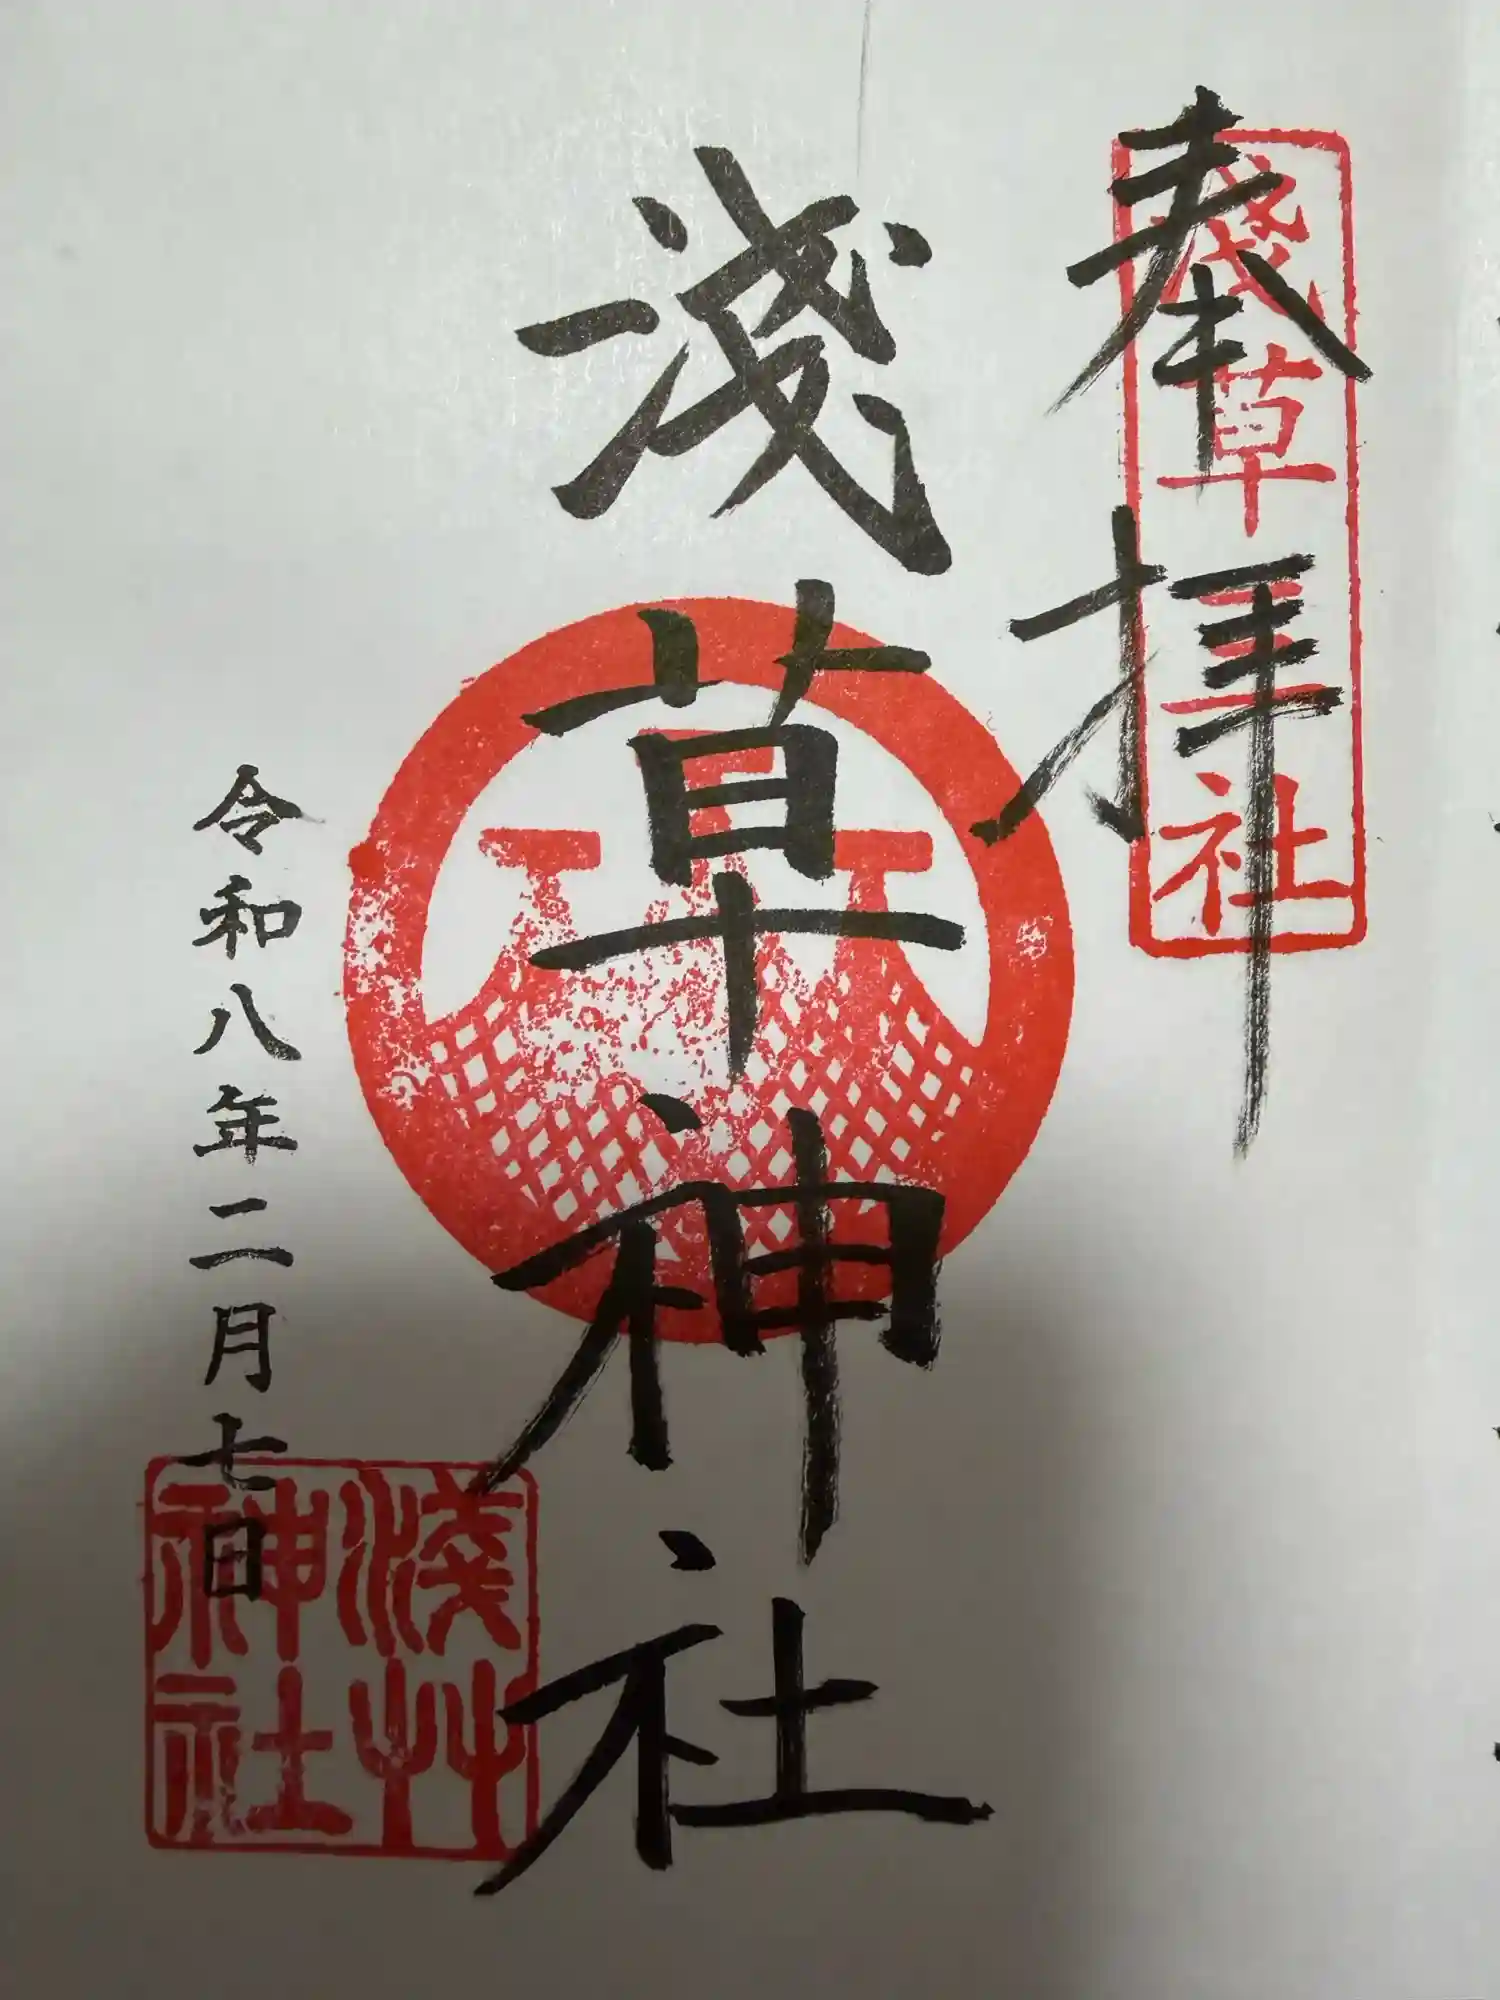 奉拝
淺草三社
淺草神社
令和八年二月七日
淺艸神社